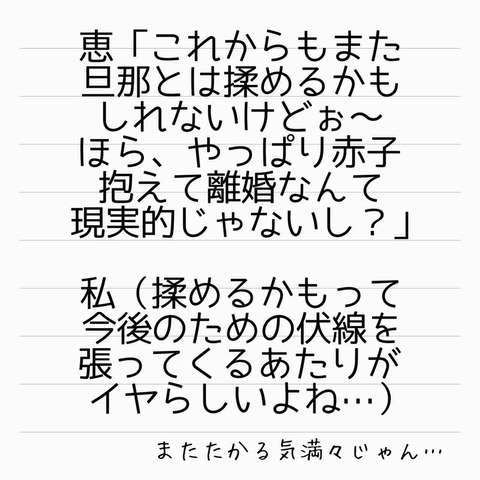 恵「これからもまた
旦那とは揉めるかも
しれないけどぉ〜
ほら、やっぱり赤子
抱えて離婚なんて
現実的じゃないし？」
私（揉めるかもって
今後のための伏線を
張ってくるあたりが
イヤらしいよね…）
またたかる気満々じゃん…